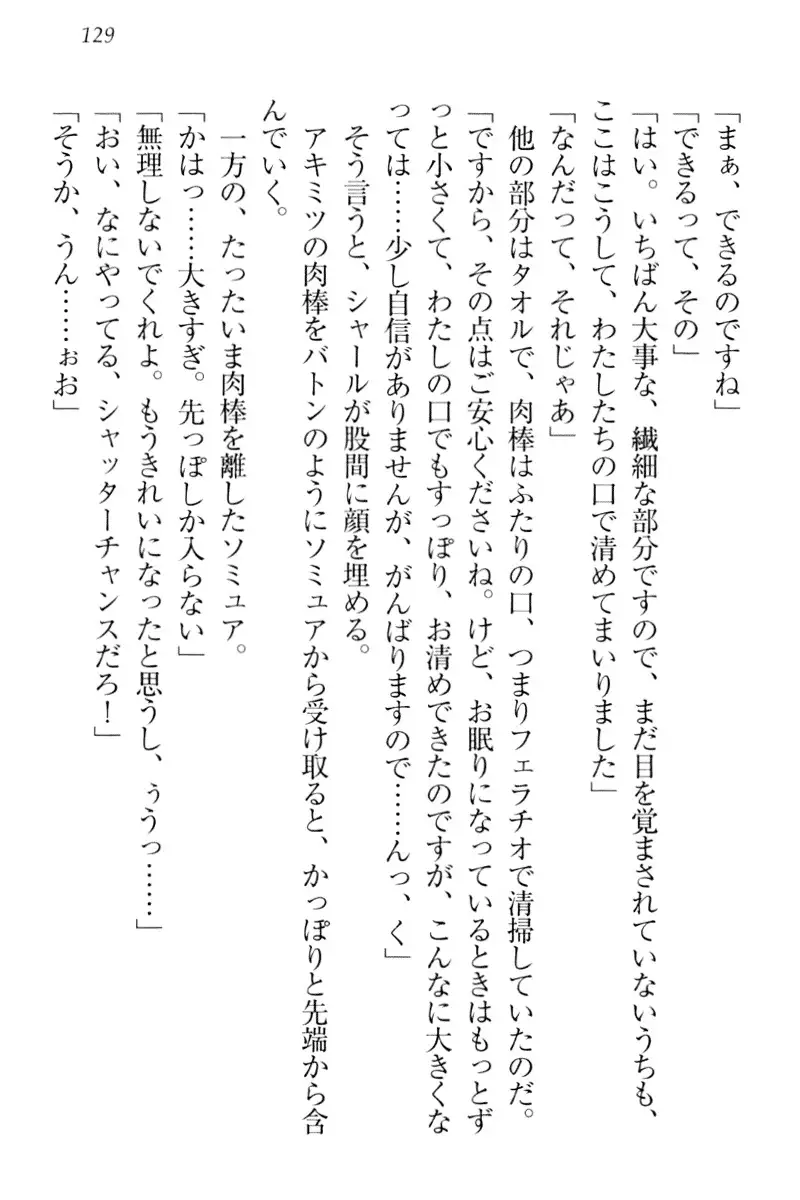 129
「まぁ、できるのですね」
「できるって、その」
「はい。いちばん大事な、繊細な部分ですので、まだ目を覚まされていないうちも、
ここはこうして、わたしたちの口で清めてまいりました」
「なんだって、それじゃあ」
他の部分はタオルで、肉棒はふたりの口、つまりフェラチオで清掃していたのだ。
「ですから、その点はご安心くださいね。けど、お眠りになっているときはもっとず
っと小さくて、わたしの口でもすっぽり、お清めできたのですが、こんなに大きくな
っては……少し自信がありませんが、がんばりますので……んっ、く」
そう言うと、シャールが股間に顔を埋める。
アキミツの肉棒をバトンのようにソミュアから受け取ると、かっぽりと先端から含
んでいく。
一方の、たったいま肉棒を離したソミュア。
「かはっ……大きすぎ。先っぽしか入らない」
「無理しないでくれよ。もうきれいになったと思うし、ぅうっ……」
「おい、なにやってる、シャッターチャンスだろ！」
「そうか、うん……ぉお」